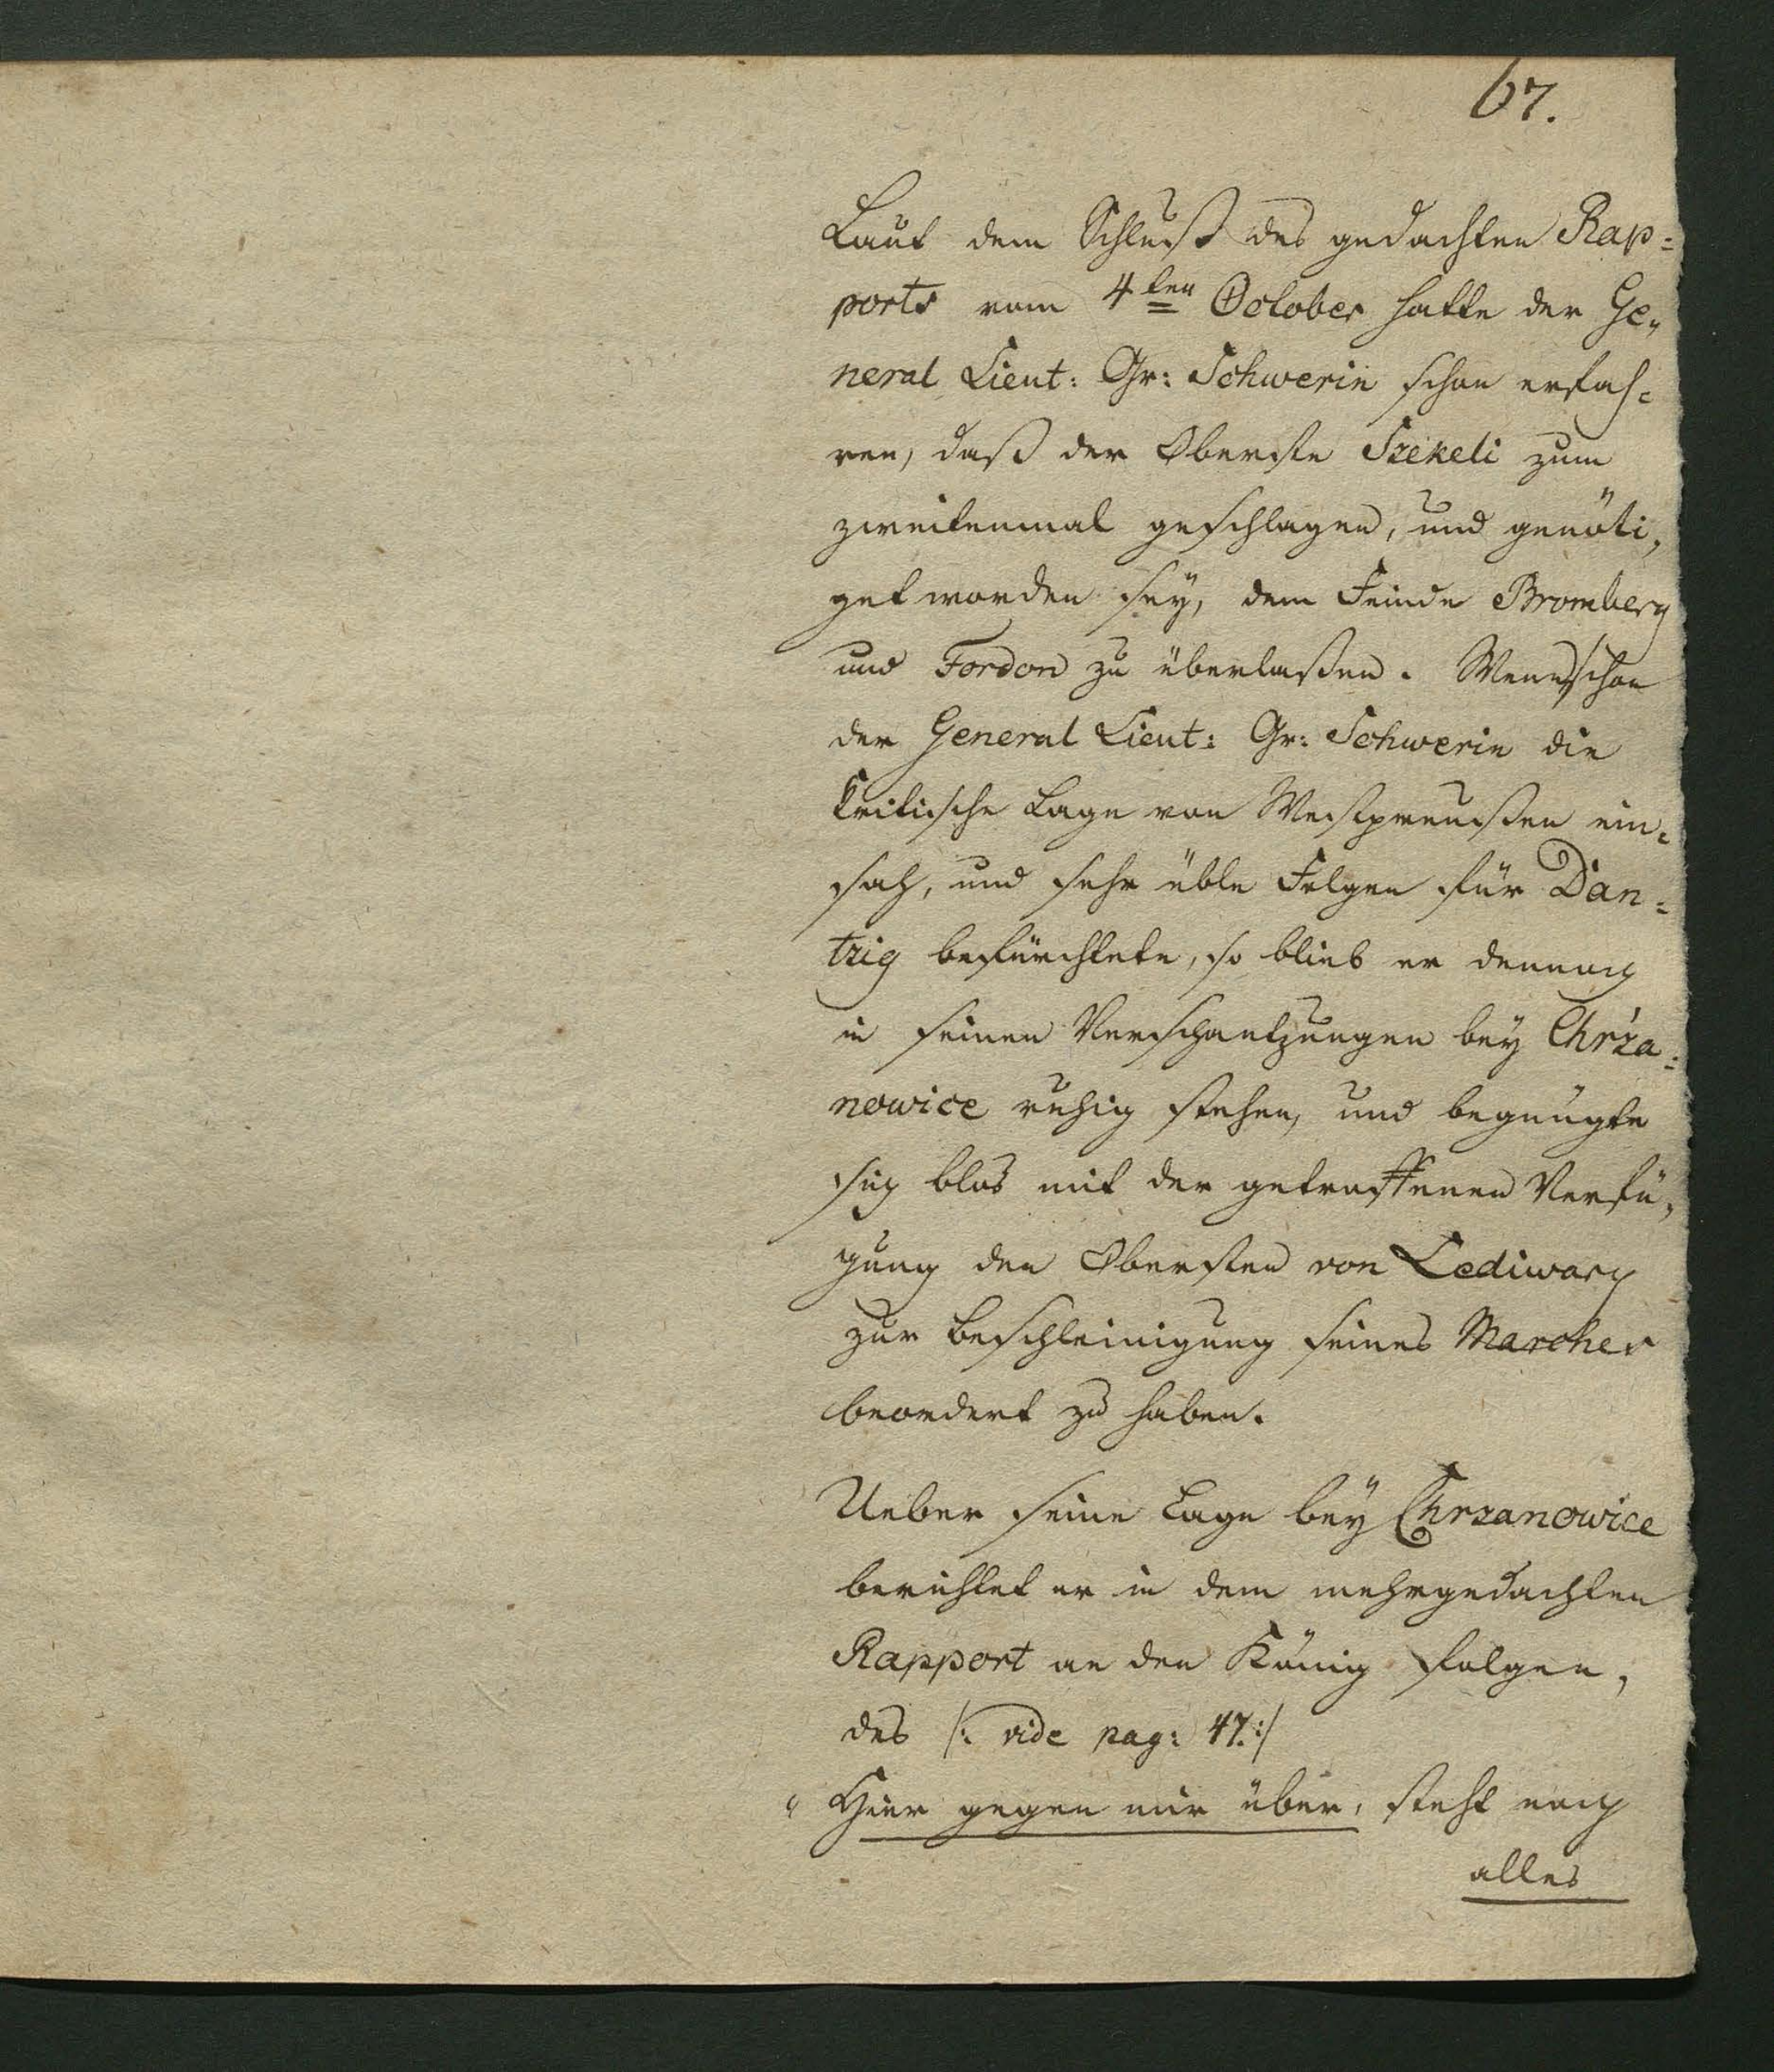 67.
Laut dem Schluß des gedachten Rap=
ports vom 4ten October hatte der Ge„
neral Lieut: Gr: Schwerin schon erfah=
ren, daß der Oberste Szekeli zum
zweitenmal geschlagen, und genöti„
get worden sey, dem Feinde Bromberg
und Fordon zu überlaßen. Wennschon
der General Lieut: Gr: Schwerin die
Kritische Lage von Westpreußen ein=
sah, und sehr üble Folgen für Dan=
tzig befürchtete, so blieb er dennoch
in seinen Verschantzungen bey Chrza=
nowice ruhig stehen, und begnügte
sich blos mit der getroffenen Verfü„
gung den Obersten von Lediwary
zur Beschleinigung seines Marches
beordert zu haben.
Ueber seine Lage bey Chrzanowice
berichtet er in dem mehrgedachten
Rapport an den König folgen„
des /: vide pag: 47. :/
„ Hier gegen mir über, steht noch
alles